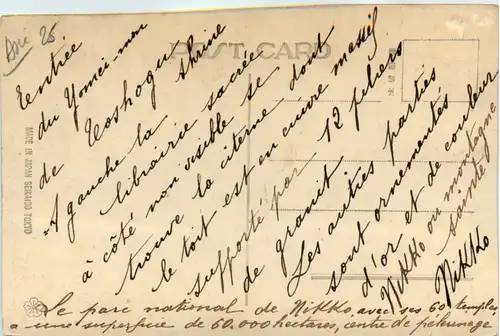 Asie 25
POST CARD
MADE IN JAPAN BENRIDO TOKYO
l'entrée
du Yomei-mon
de Toshogu shrine
A gauche la
librairie sacrée
à côté non visible se
trouve la citerne dont
le toit est en cuivre massif
supporté par 12 piliers
de granit.
Les autres parties
sont ornementés
d'or et de couleur
Nikko ou montagne
sainte
Nikko
Le parc national de Nikko, avec ses 60 temples
a une superficie de 60.000 hectares, centre de pélerinages